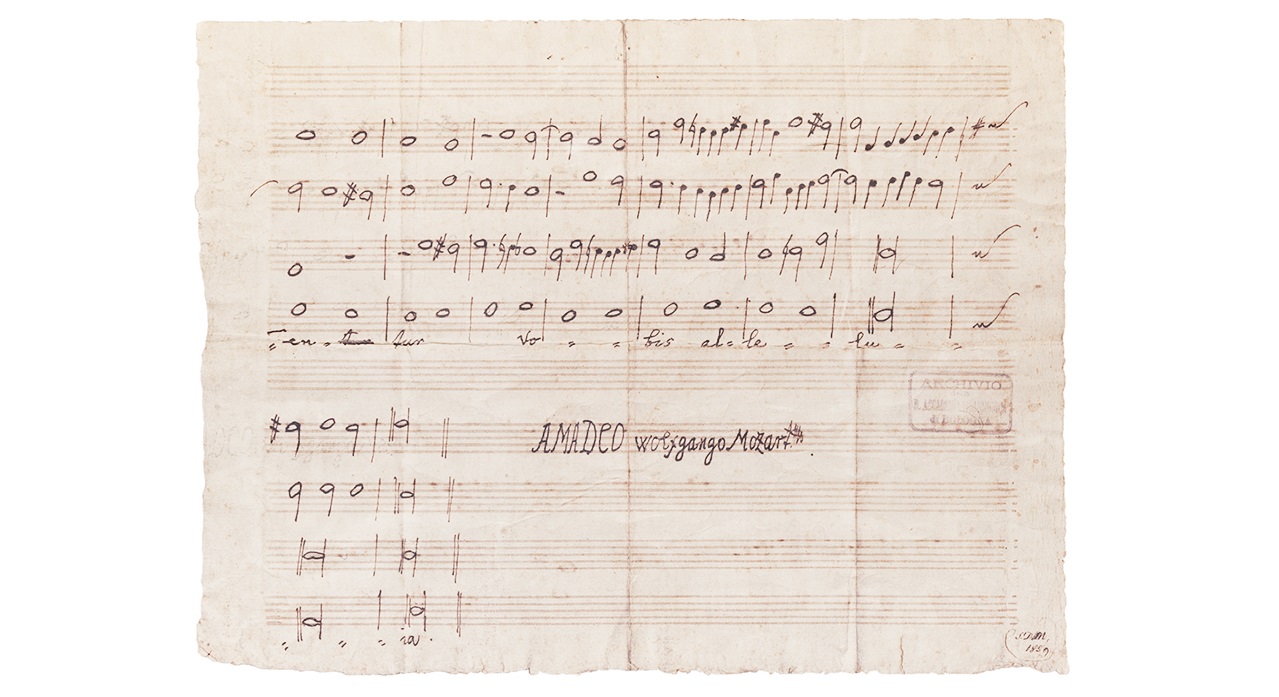 en tur vo bis al le lu
ARCHIVIO
AMADEO Wolfgango Mozart
ia.
1859